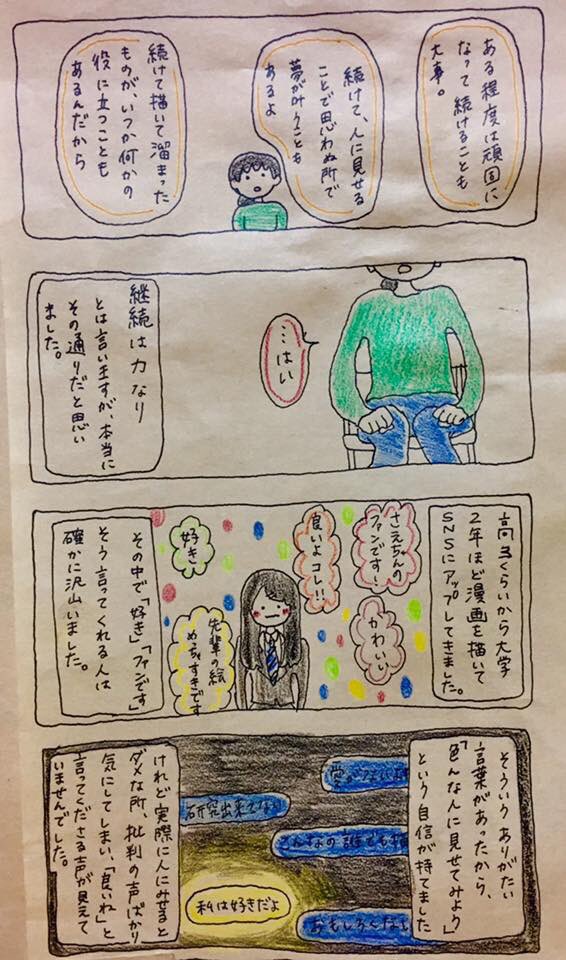 ある程度は頑固に
なって続けることも
大事。
続けて、人に見せる
ことで思わぬ所で
夢が叶うことも
あるよ
続けて描いて溜まった
ものが、いつか何かの
役に立つことも
あるんだから
…はい
継続は力なり
とは言いますが、本当に
その通りだと思い
ました。
高3くらいから大学
2年ほど漫画を描いて
SNSにアップしてきました。
さえちゃんの
ファンです!
良いよコレ!!
好き
かわいい
先輩の絵
めっちゃすきです
その中で「好き」「ファンです」
そう言ってくれる人は
確かに沢山いました。
そういうありがたい
言葉があったから、
「色んな人に見せてみよう」
という自信が持てました
研究出来てない
こんなの誰でも描
私は好きだよ
おもしろくない
けれど実際に人にみせると
ダメな所、批判の声ばかり
気にしてしまい、「良いね」と
言ってくださる声が見えて
いませんでした。